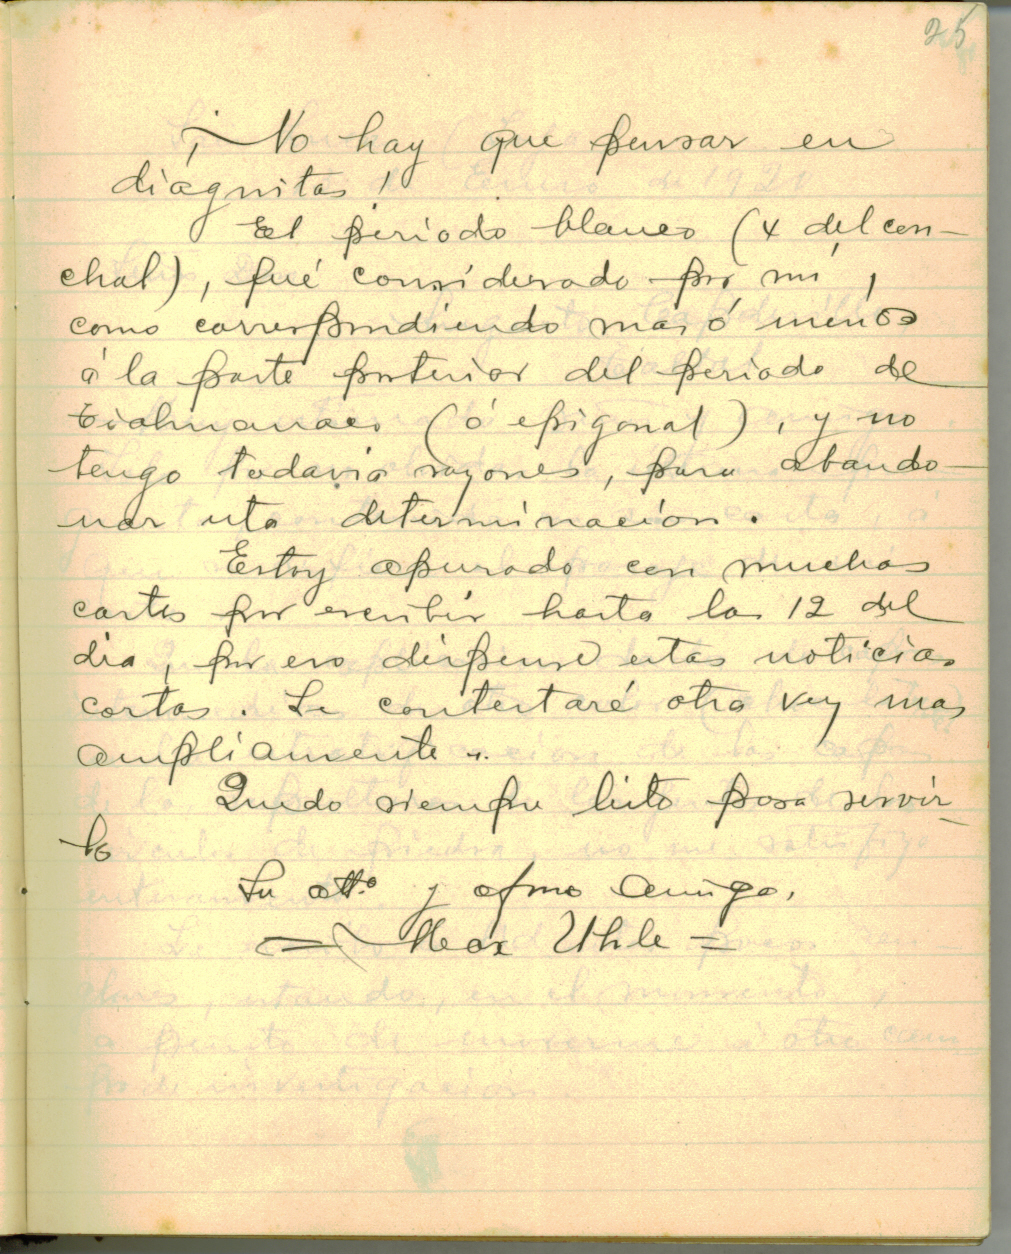 25
¡No hay que pensar en
diagnitas!
El periodo blanco (4 del con-
chal), fué considerado por mi,
como correspondiendo mas ó menos
á la parte posterior del periodo de
Tiahuanaco (ó epigonal), y no
tengo todavia razones, para abando-
nar esta determinacion.
Estoy apurado con muchas
cartas por escribir hasta las 12 del
dia, por eso dispense estas noticias
cortas. Le contestaré otra vez mas
ampliamente.
Quedo siempre listo para servir-
lo
Su att.º y afmo amigo.
= Max Uhle =